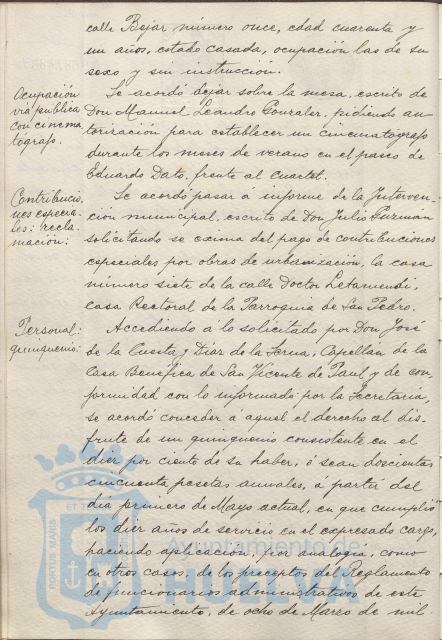 calle Bejar número once, edad cuarenta y
un años, estado casada, ocupación las de su
sexo y sin instrucción.
Ocupación
vía publica
con cinema-
tógrafo.
Se acordó dejar sobre la mesa, escrito de
Don Manuel Leandro Gonzalez, pidiendo au-
torización para establecer un cinematógrafo
durante los meses de verano en el paseo de
Eduardo Dato, frente al Cuartel.
Contribucio-
nes especia-
les: recla-
mación:
Se acordó pasar á informe de la Interven-
ción municipal, escrito de Don Julio Guzman
solicitando se exima del pago de contribuciones
especiales por obras de urbanización, la casa
número siete de la calle Doctor Letamendi,
casa Rectoral de la Parroquia de San Pedro.
Personal:
quinquenio:
Accediendo á lo solicitado por Don José
de la Cuesta y Diaz de la Serna, Capellan de la
Casa Benéfica de San Vicente de Paul y de con-
formidad con lo informado por la Secretaría,
se acordó conceder á aquel el derecho al dis-
frute de un quinquenio consistente en el
diez por ciento de su haber, ó sean doscientas
cincuenta pesetas anuales, á partir del
día primero de Mayo actual, en que cumplió
los diez años de servicio en el expresado cargo,
haciendo aplicación, por analogía, como
en otros casos, de los preceptos del Reglamento
de funcionarios administrativos de este
Ayuntamiento, de ocho de Marzo de mil
PORTUS MARIS
ET TERRÆ
Ayuntamiento de
HUELVA